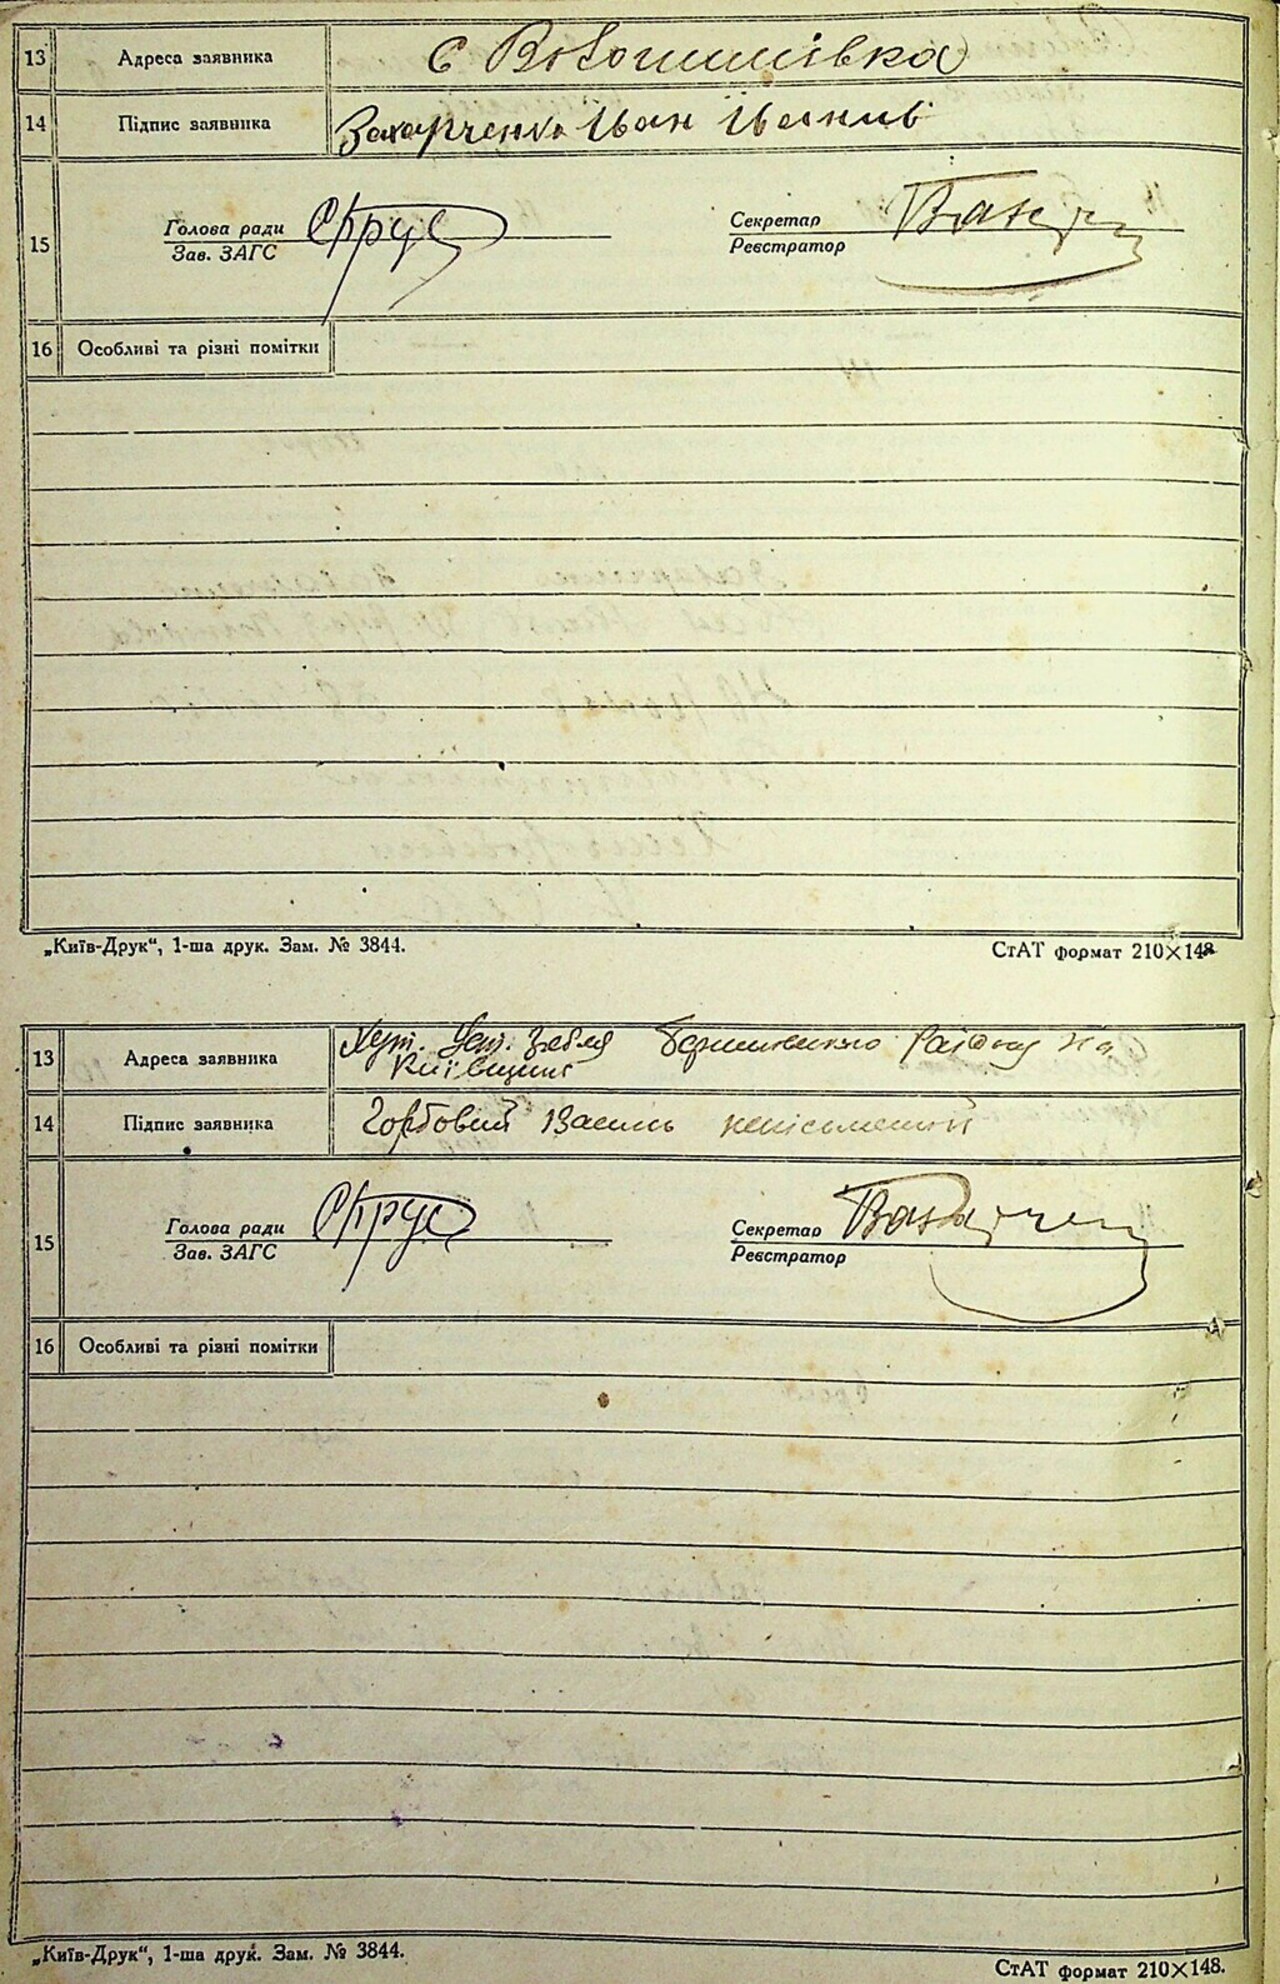 13 Адреса заявника с Волошинівка
14 Підпис заявника Захарченко Іван Іванов
15 Голова ради
Зав. ЗАГС
Секретар
Реєстратор
16 Особливі та різні помітки
„Київ-Друк“, 1-ша друк. Зам. № 3844. СтАТ формат 210×148
13 Адреса заявника Хут. району на
Київщині
14 Підпис заявника Горбовий Василь неписьменний
15 Голова ради
Зав. ЗАГС
Секретар
Реєстратор
16 Особливі та різні помітки
„Київ-Друк“, 1-ша друк. Зам. № 3844. СтАТ формат 210×148.